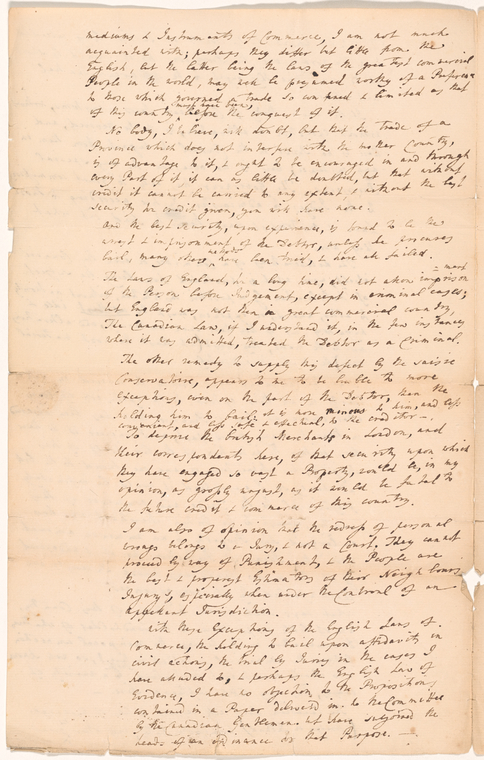 mediums & Instruments of Commerce, I am not much
acquainted with; perhaps they differ but little from the
English, but the latter being the laws of the greatest commercial
People in the world, may well be presumed worthy of a Preference
to those which governed a trade so confined & limited as that
of this country must have been, before the conquest of it.
No body, I believe, will doubt, but that the trade of a
Province which does not interfere with the mother Country,
is of advantage to it, & ought to be encouraged in and through
every Part of it if can as little be doubted, but that without
credit it cannot be carried to any extent, & without the best
security for credit given, you will have none.
One the best security, upon experience, is found to be the
arrest & imprisonment of the Debtor, unless he procures
bail, many other methods have been tried, & have all failed.
The Laws of England, for a long time, did not allow imprison
-ment
of the Person before Judgement, except in criminal cases;
but England was not then a great commercial country,
The Canadian Laws, if I understand it, in the few instances
where it was admitted, treated the Debtor as a Criminal.
The other remedy to supply this defect by the saisie
Conservatoire, appears to me to be liable to more
exceptions, even on the part of the Debtor, than the
holding him to bail; it is more ruinous to him, and less
convenient, and less safe & effectual, to the creditor —.
To deprive the British Merchants in London, and
their correspondents here, of that security upon which
they have engaged so vast a Property, would be, in my
opinion, as grossly unjust, as it would be fatal to
the future credit & commerce of this country.
I am also of opinion that the redress of personal
wrongs belongs to a Jury, & not a Court. They cannot
proceed by way of Punishment, & the People are
the best & properest Estimators of their Neighbours
Injurys, especially when under the Controul of an
Appellant Jurisdiction.
With these Exceptions of the English Laws of
Commerce, the holding to bail upon affidavits in
civil actions, the trial by Jurys in the cases I
have alluded to, & perhaps the English Law of
Evidence, I have no objection to the Propositions
contained in a Paper delivered in to the Committee
by the Canadian Gentlemen have subjoined the
heads of an ordinance for that Purpose. —